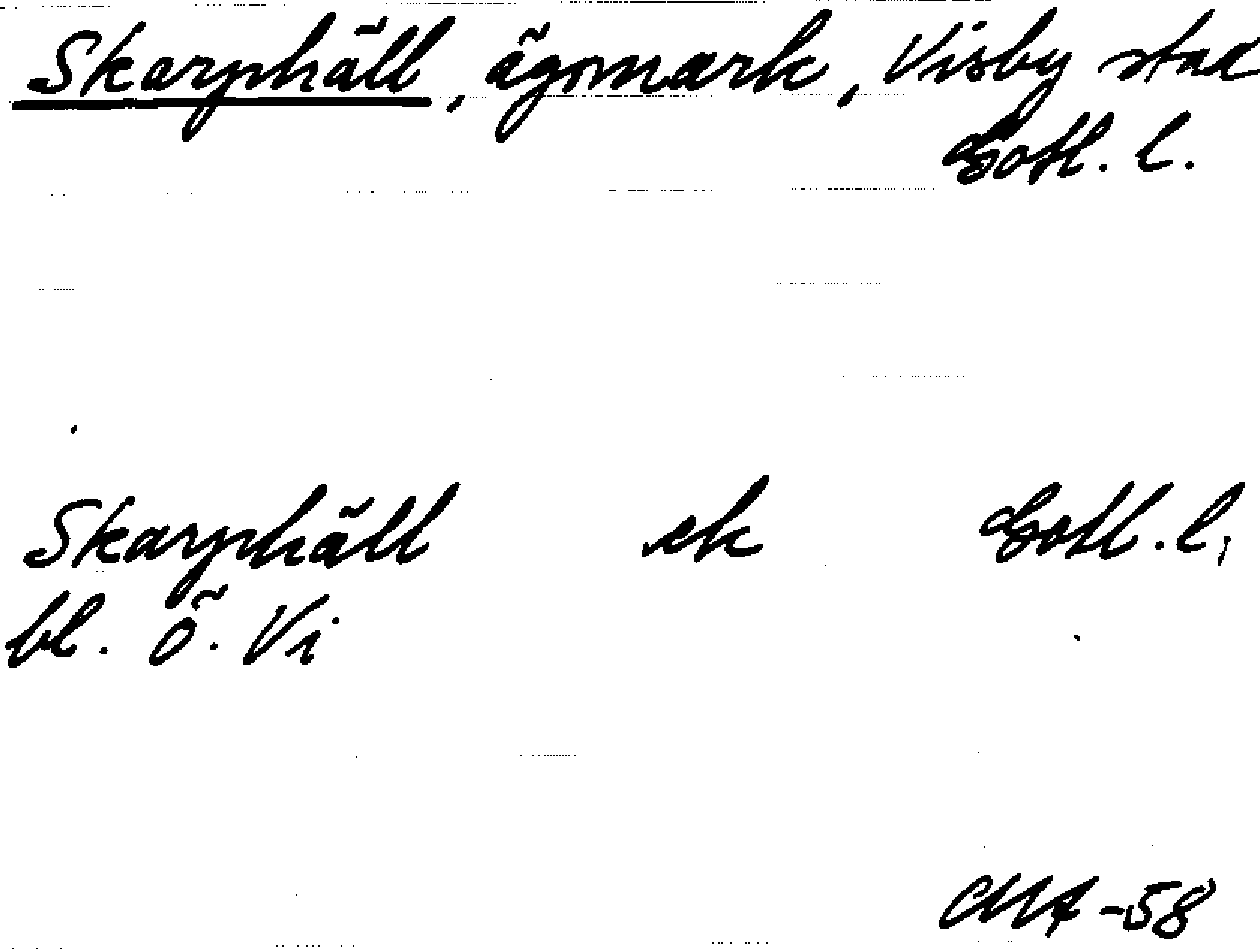 Skarphäll, ägomark, Visby stad
Gotl. l.
Skarphäll ek Gotl. l,
bl. Ö. Vi
CMA -58